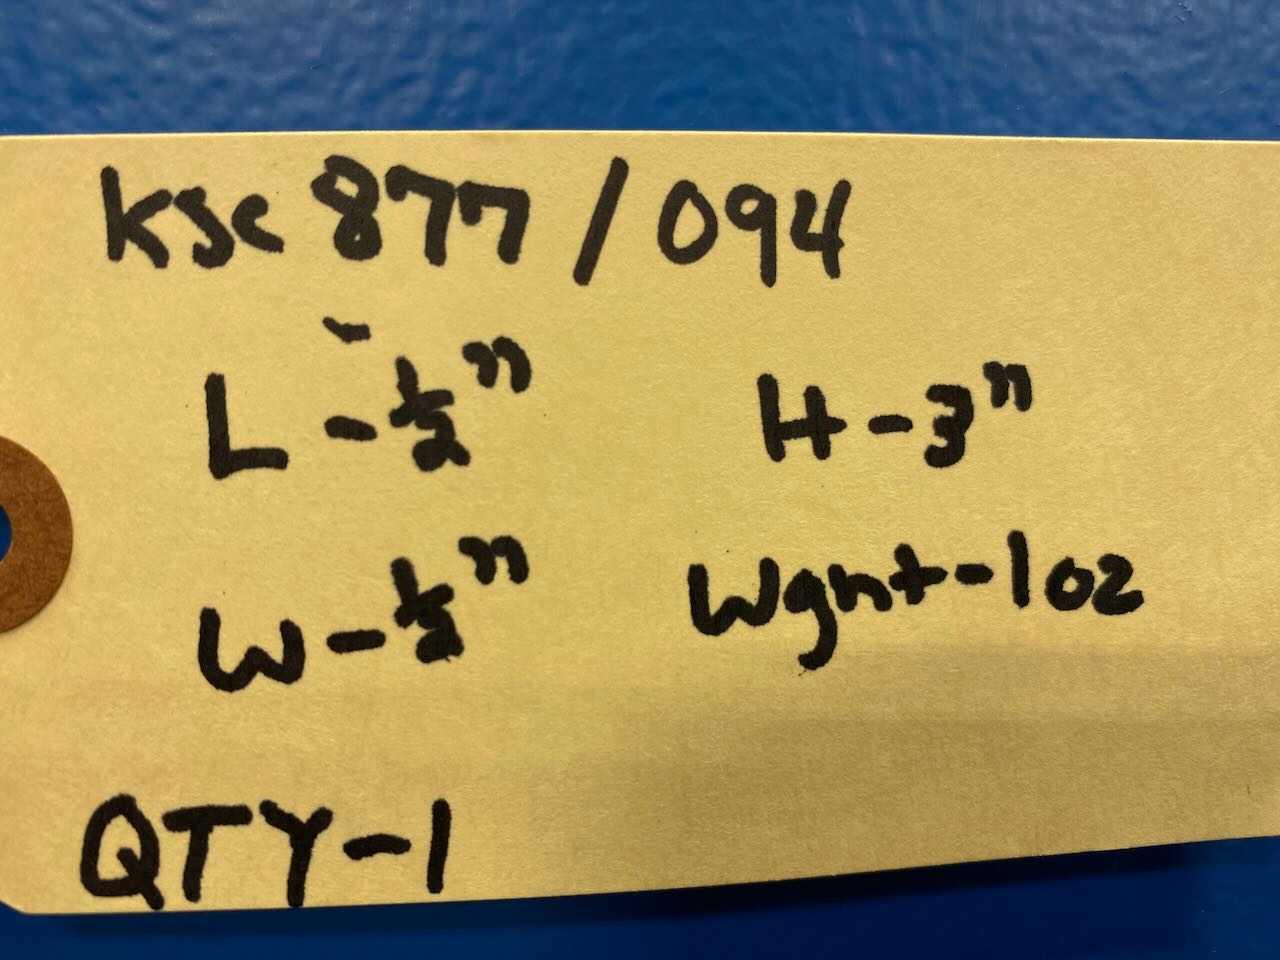 KSC 877 / 094
L - 1/2" H - 3"
W - 1/2" Wgnt - 1 oz
QTY - 1